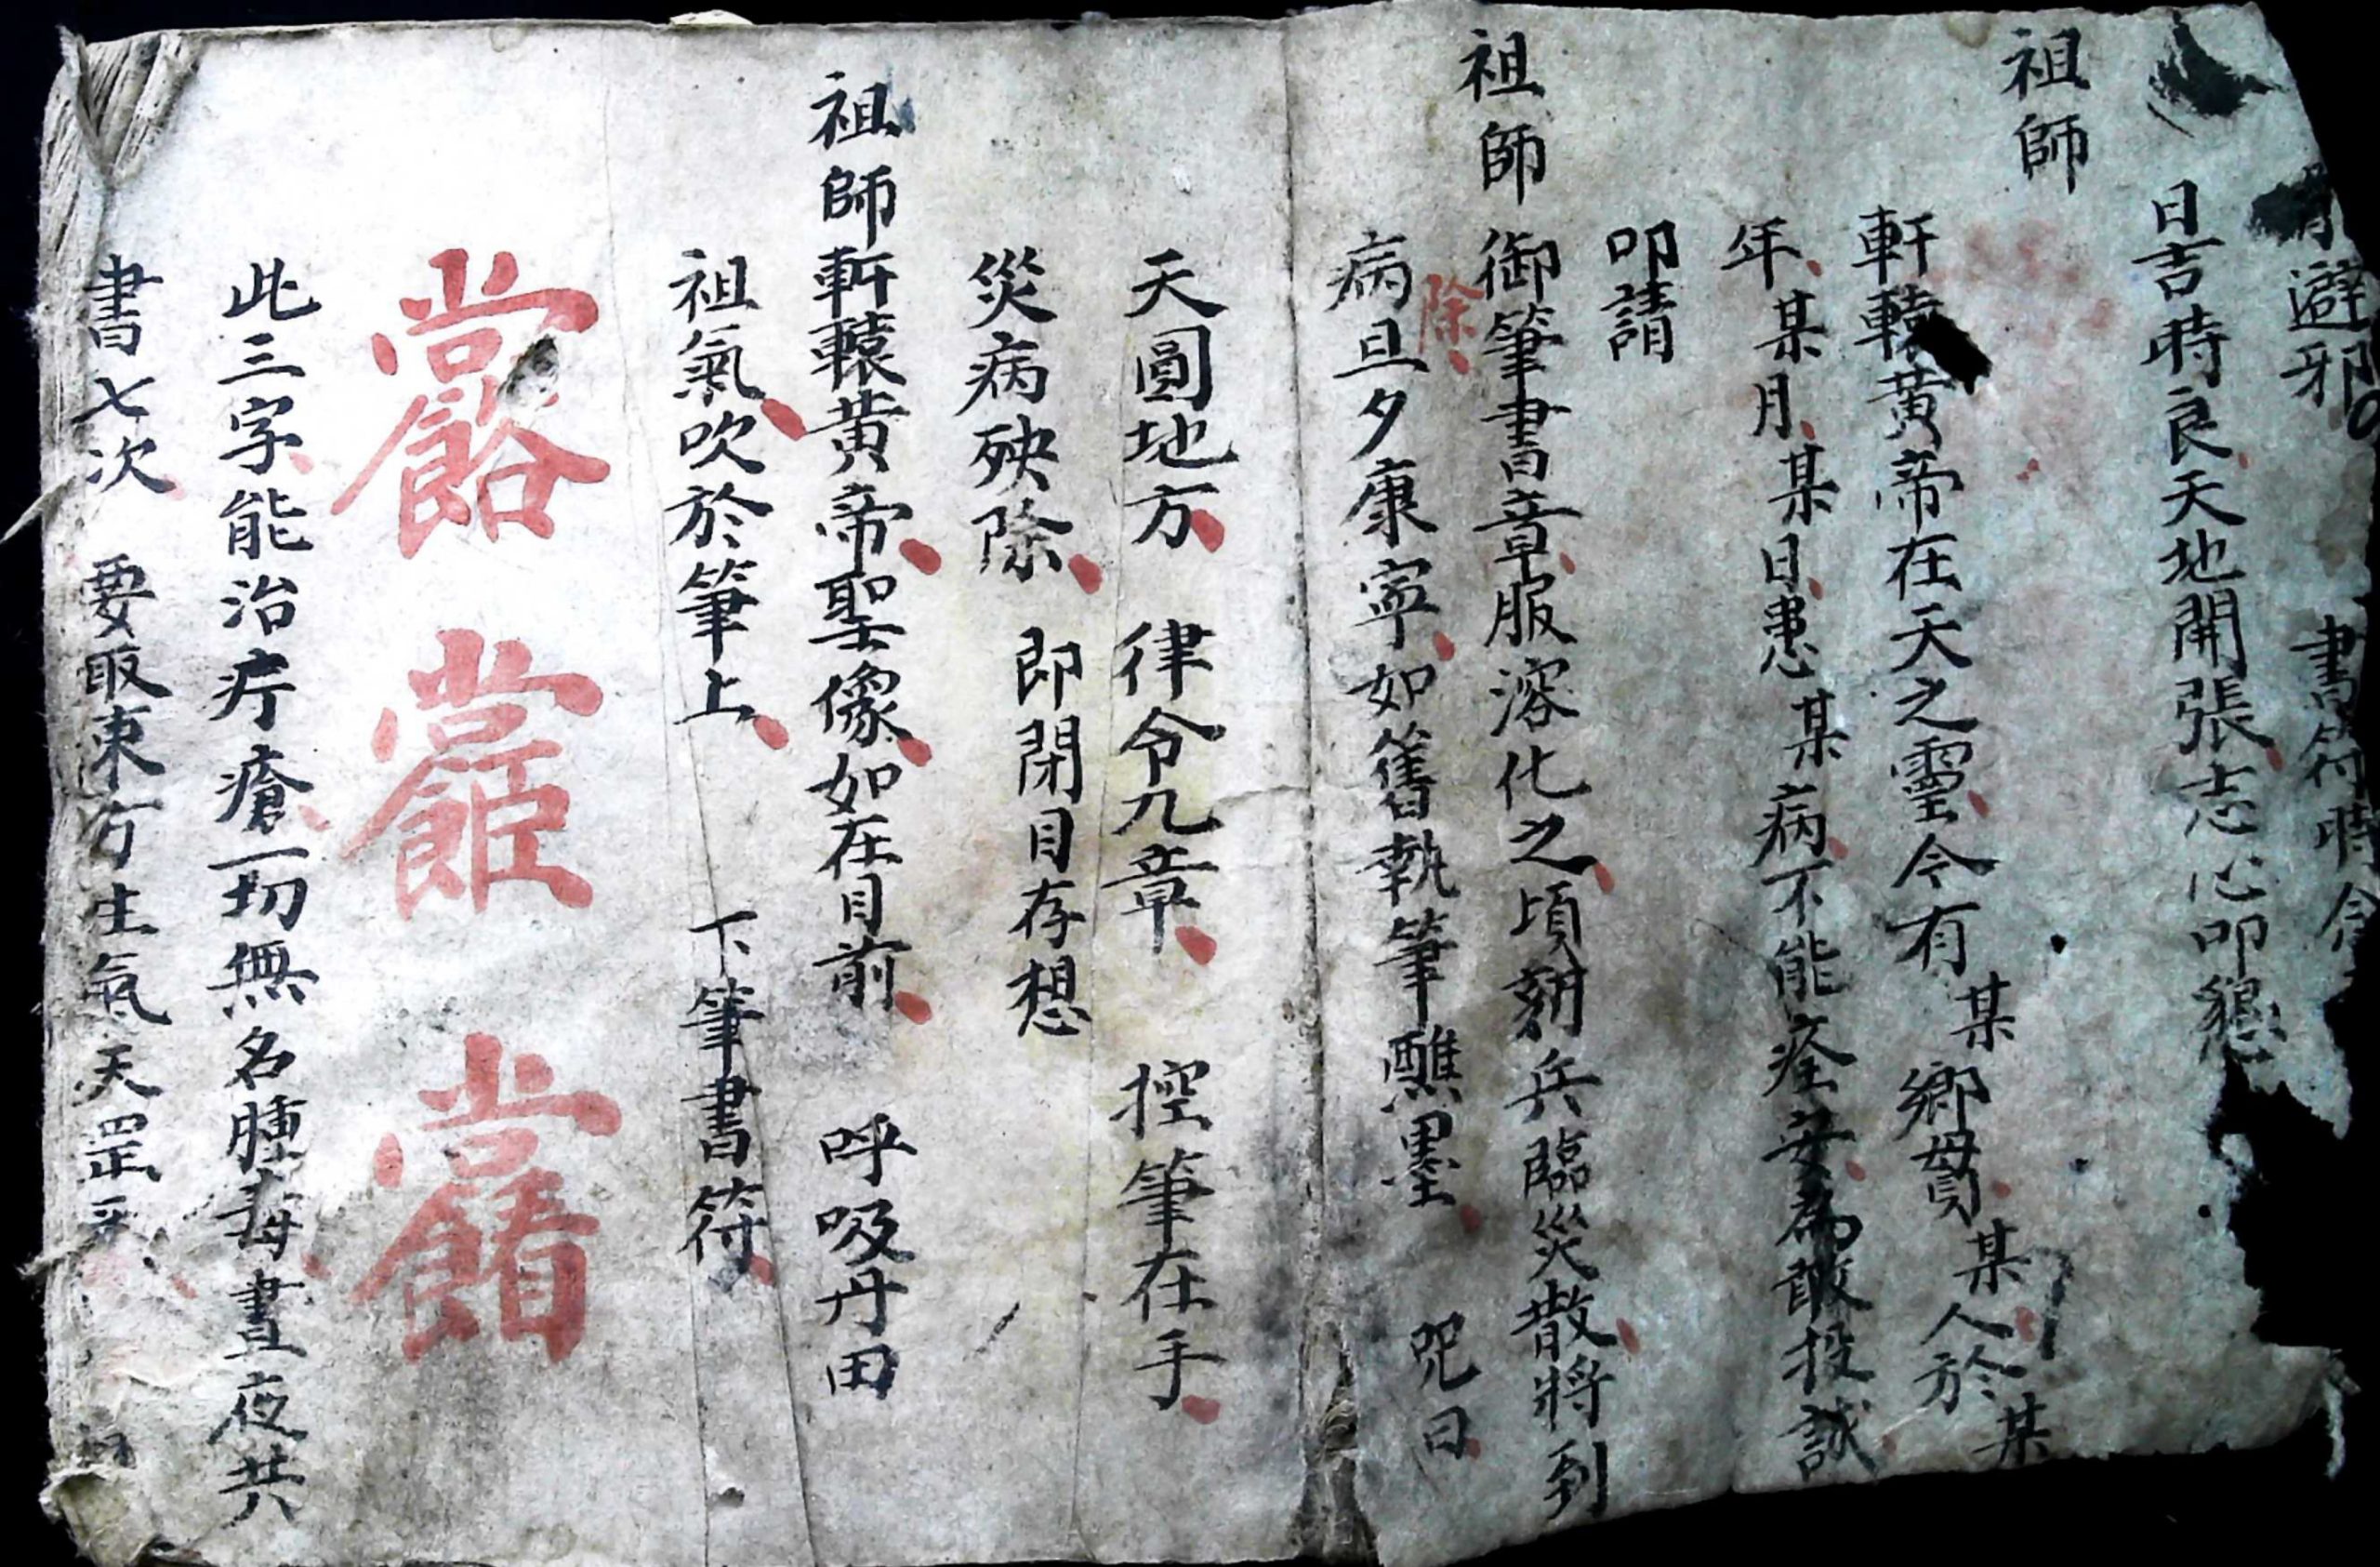 避邪。書符時令
日吉時良天地開張志心叩懇
祖師
軒轅黃帝在天之靈令有某鄉貫某人於某
年某月某日患某病不能痊安為敢投誠
叩請
祖師御筆書章服溶化之頃刻兵臨災散將到
病除旦夕康寧如舊執筆醮墨 咒曰
天圓地方 律令九章 控筆在手
災病殃除 即閉目存想
祖師軒轅黃帝聖像如在目前 呼吸丹田
祖氣吹於筆上 下筆書符
此三字能治疔瘡一切無名腫毒晝夜共
書七次 要取東方生氣天罡